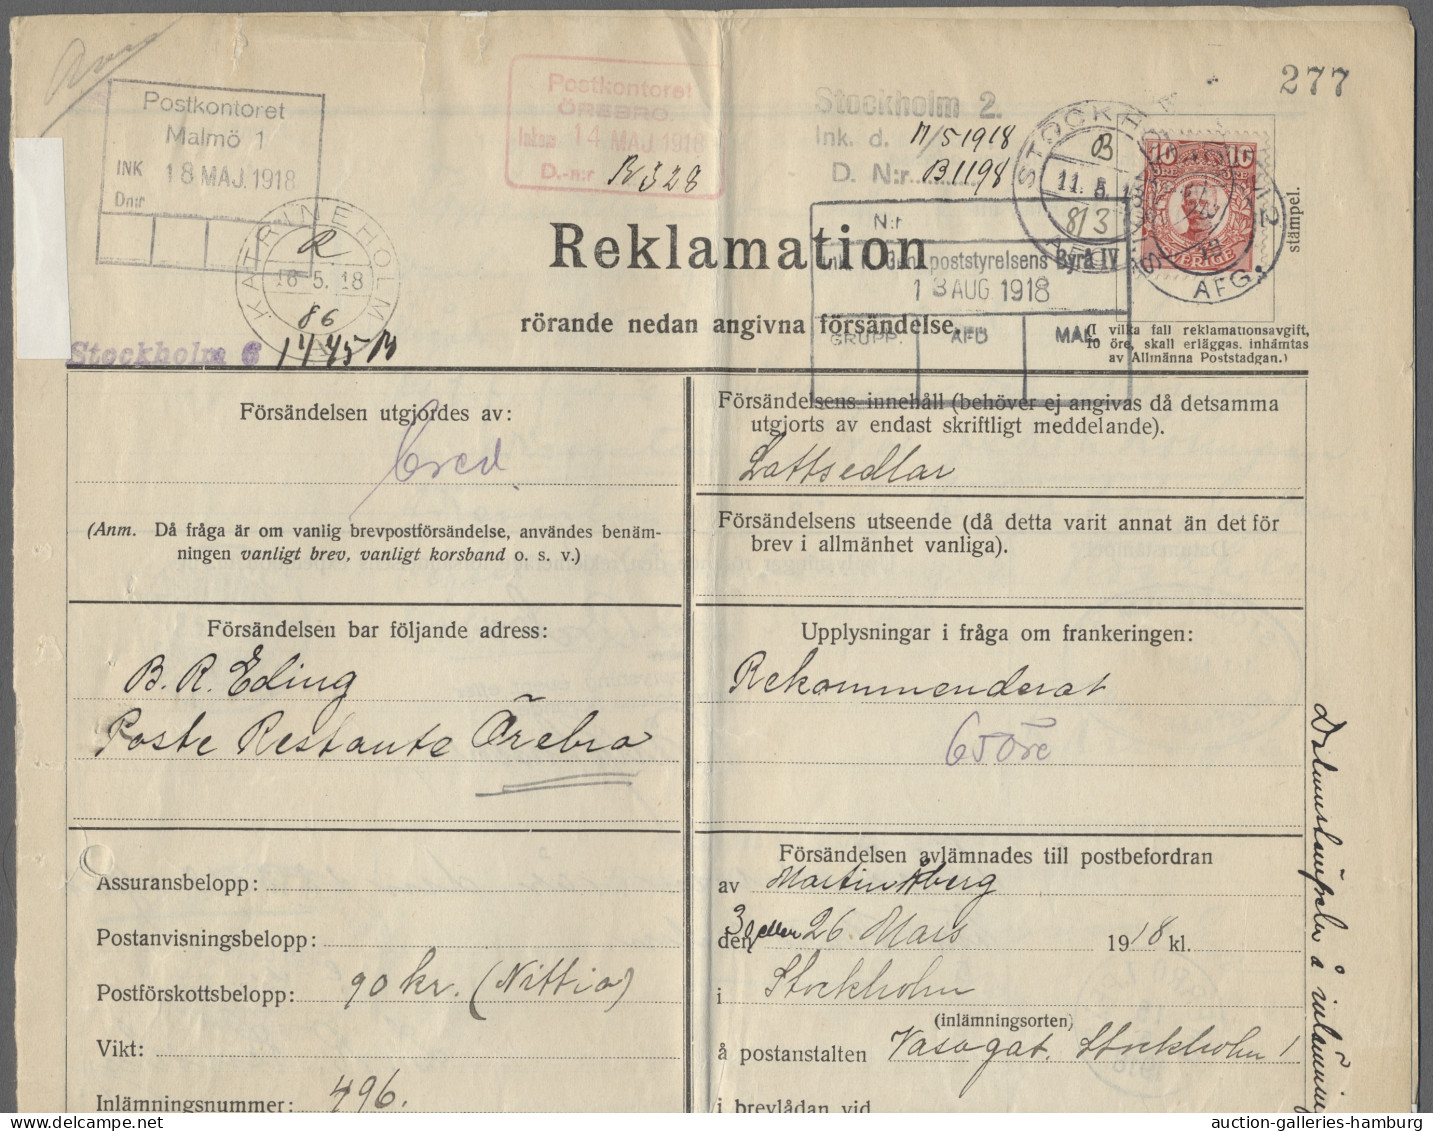 277
Postkontoret
Malmö 1
INK 18 MAJ. 1918
Dn:r
Postkontoret
ÖREBRO.
Inkom 14 MAJ 1918
D.-n:r B328
Stockholm 2.
Ink. d. 11/5 1918
D. N:r B1198
STOCKHOLM
B
11. 5. 18
8/3
AFG.
STOCKHOLM 2
AFG.
10 10
ÖRE ÖRE
SVERIGE
stämpel.
KATRINEHOLM
16.5.18
86
Stockholm 6 1445 B
Reklamation
rörande nedan angivna försändelse.
N:r
Ink. t. Gen. poststyrelsens Byrå IV
13 AUG 1918
GRUPP. AFD MAK
(I vilka fall reklamationsavgift,
10 öre, skall erläggas, inhämtas
av Allmänna Poststadgan.)
Försändelsen utgjordes av:
brev
(Anm. Då fråga är om vanlig brevpostförsändelse, användes benäm-
ningen vanligt brev, vanligt korsband o. s. v.)
Försändelsens innehåll (behöver ej angivas då detsamma
utgjorts av endast skriftligt meddelande).
Lottsedlar
Försändelsens utseende (då detta varit annat än det för
brev i allmänhet vanliga).
Försändelsen bar följande adress:
B. R. Eding
Poste Restante Örebro
Upplysningar i fråga om frankeringen:
Rekommenderat
65 öre
Assuransbelopp:
Postanvisningsbelopp:
Postförskottsbelopp: 90 kr. (Nittio)
Vikt:
Inlämningsnummer: 496.
Försändelsen avlämnades till postbefordran
av Martin Åberg
den eller 26 Mars 1918 kl.
i Stockholm
(inlämningsorten)
å postanstalten Vasagat. Stockholm 1
i brevlådan vid
Datumstämpeln å inlämning
auction-galleries-hamburg